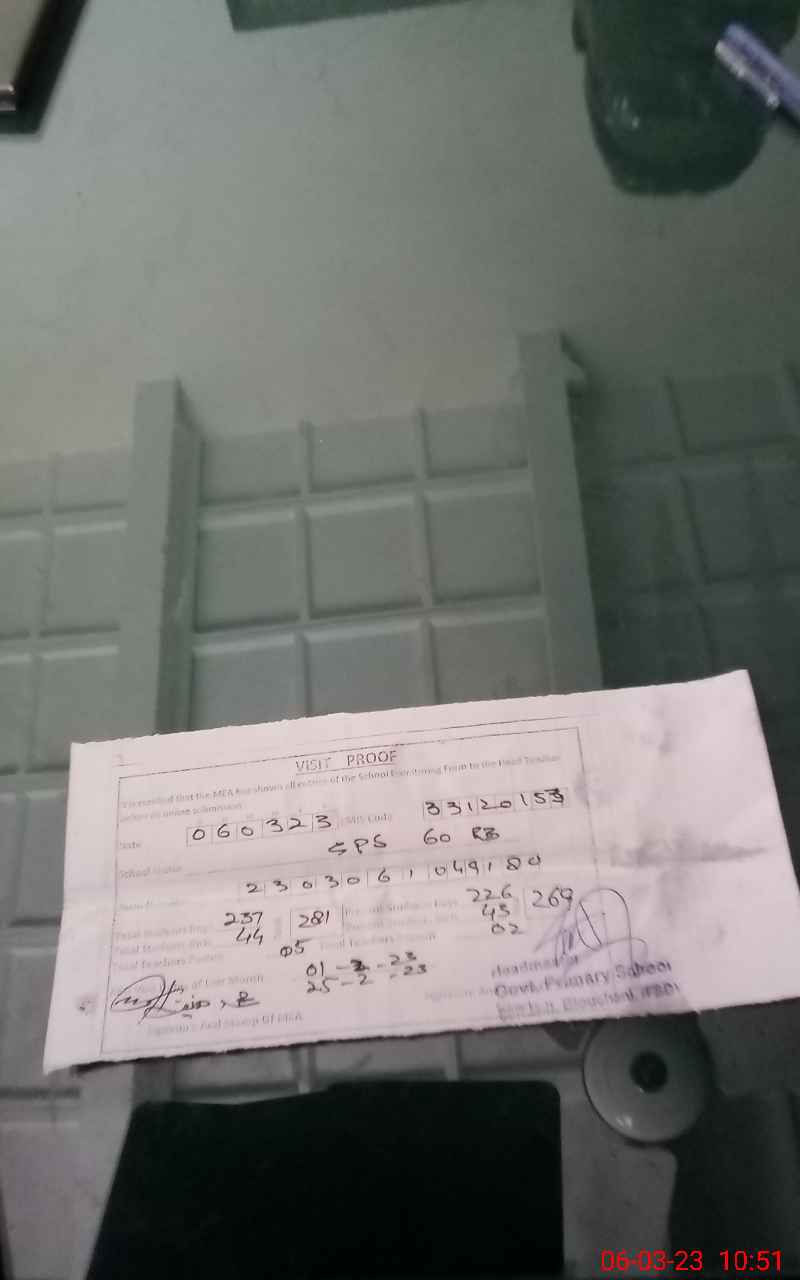 VISIT PROOF
It is certified that the MEA has shown all entries of the School Monitoring Form to the Head Teacher
before its online submission
Date 060323 EMIS Code 33120153
School Name GPS 60 RB
230306 1 049180
Total Students Reg 237 281 226 269
44 43
Total Teachers Posted 05 Total Teachers Present 02
of Last Month 01-2-23
25-2-23
Signature And Stamp Of MEA
Headmaster
Govt. Primary School
06-03-23 10:51